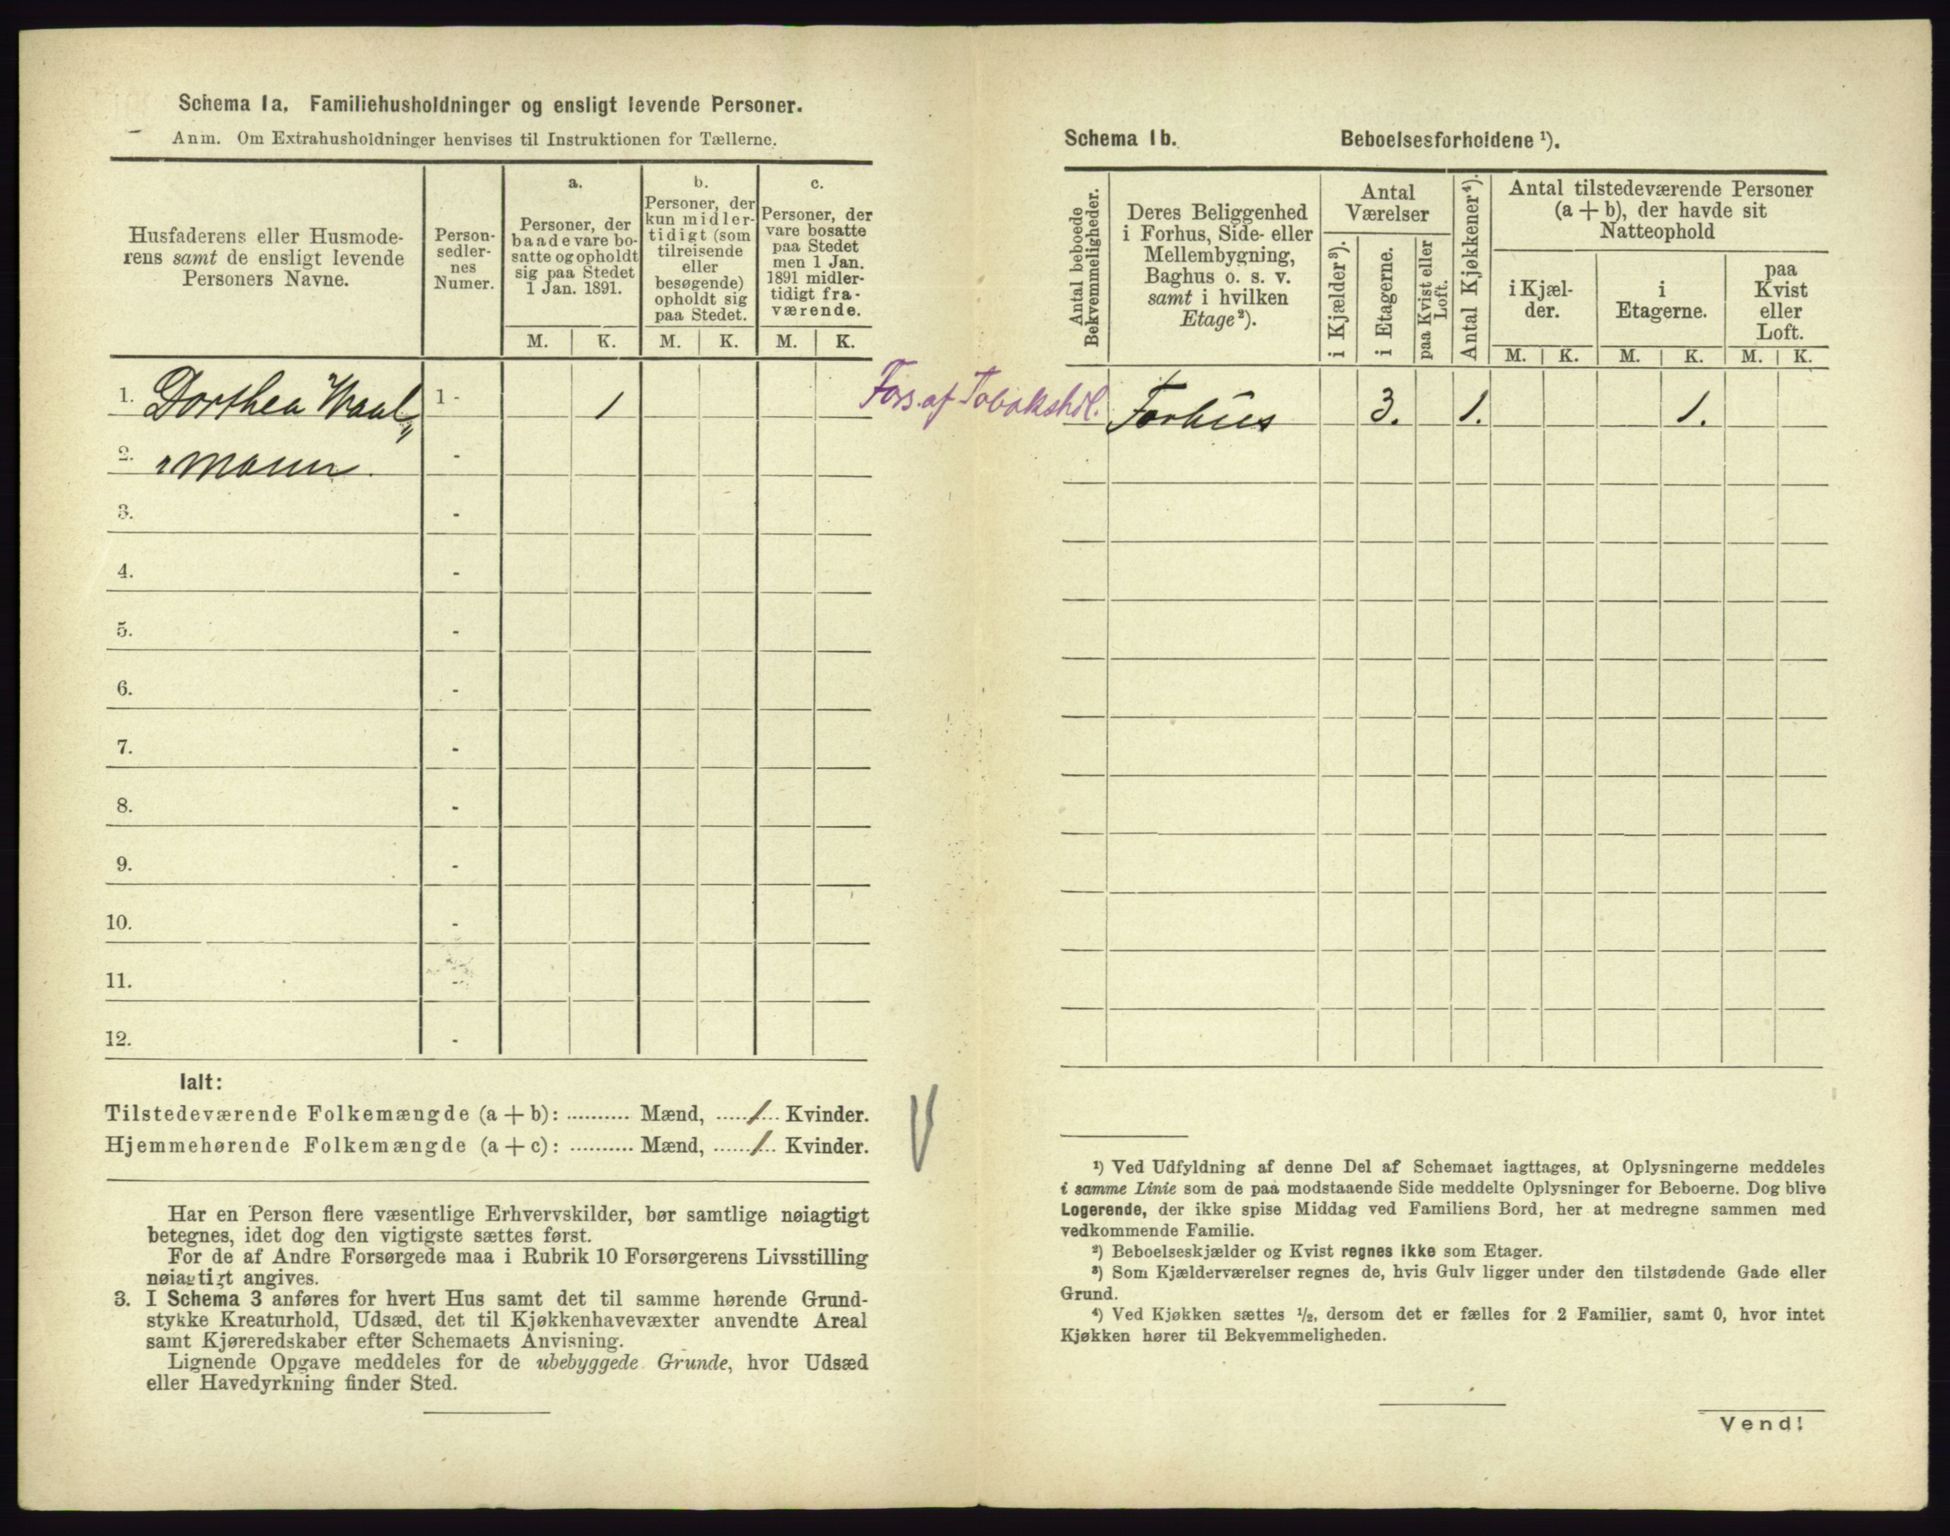 Schema 1a. Familiehusholdninger og ensligt levende Personer.
Anm. Om Extrahusholdninger henvises til Instruktionen for Tællerne.
Husfaderens eller Husmode-
rens samt de ensligt levende
Personers Navne.
Person-
sedler-
nes
Numer.
a.
Personer, der
baade vare bo-
satte og opholdt
sig paa Stedet
1 Jan. 1891.
b.
Personer, der
kun midler-
tidigt (som
tilreisende
eller
besøgende)
opholdt sig
paa Stedet.
c.
Personer, der
vare bosatte
paa Stedet
men 1 Jan.
1891 midler-
tidigt fra-
værende.
M. K. M. K. M. K.
1. Dorthea Waal„ 1 - 1
2. „mann. -
3. -
4. -
5. -
6. -
7. -
8. -
9. -
10. -
11. -
12. -
Ialt:
Tilstedeværende Folkemængde (a + b): .......... Mænd, ...... 1 ... Kvinder.
Hjemmehørende Folkemængde (a + c): .......... Mænd, ...... 1 ... Kvinder.
Har en Person flere væsentlige Erhvervskilder, bør samtlige nøiagtigt
betegnes, idet dog den vigtigste sættes først.
For de af Andre Forsørgede maa i Rubrik 10 Forsørgerens Livsstilling
nøiagtigt angives.
3. I Schema 3 anføres for hvert Hus samt det til samme hørende Grund-
stykke Kreaturhold, Udsæd, det til Kjøkkenhavevæxter anvendte Areal
samt Kjøreredskaber efter Schemaets Anvisning.
Lignende Opgave meddeles for de ubebyggede Grunde, hvor Udsæd
eller Havedyrkning finder Sted.
Schema 1b. Beboelsesforholdene ¹).
Antal beboede
Bekvemmeligheder.
Deres Beliggenhed
i Forhus, Side- eller
Mellembygning,
Baghus o. s. v.
samt i hvilken
Etage²).
Antal
Værelser
i Kjælder³).
i Etagerne.
paa Kvist eller
Loft.
Antal Kjøkkener⁴).
Antal tilstedeværende Personer
(a + b), der havde sit
Natteophold
i Kjæl-
der.
i
Etagerne.
paa
Kvist
eller
Loft.
M. K. M. K. M. K.
Fors. af Tobakshdl. Forhus 3. 1. 1.
¹) Ved Udfyldning af denne Del af Schemaet iagttages, at Oplysningerne meddeles
i samme Linie som de paa modstaaende Side meddelte Oplysninger for Beboerne. Dog blive
Logerende, der ikke spise Middag ved Familiens Bord, her at medregne sammen med
vedkommende Familie.
²) Beboelseskjælder og Kvist regnes ikke som Etager.
³) Som Kjælderværelser regnes de, hvis Gulv ligger under den tilstødende Gade eller
Grund.
⁴) Ved Kjøkken sættes ½, dersom det er fælles for 2 Familier, samt 0, hvor intet
Kjøkken hører til Bekvemmeligheden.
Vend!